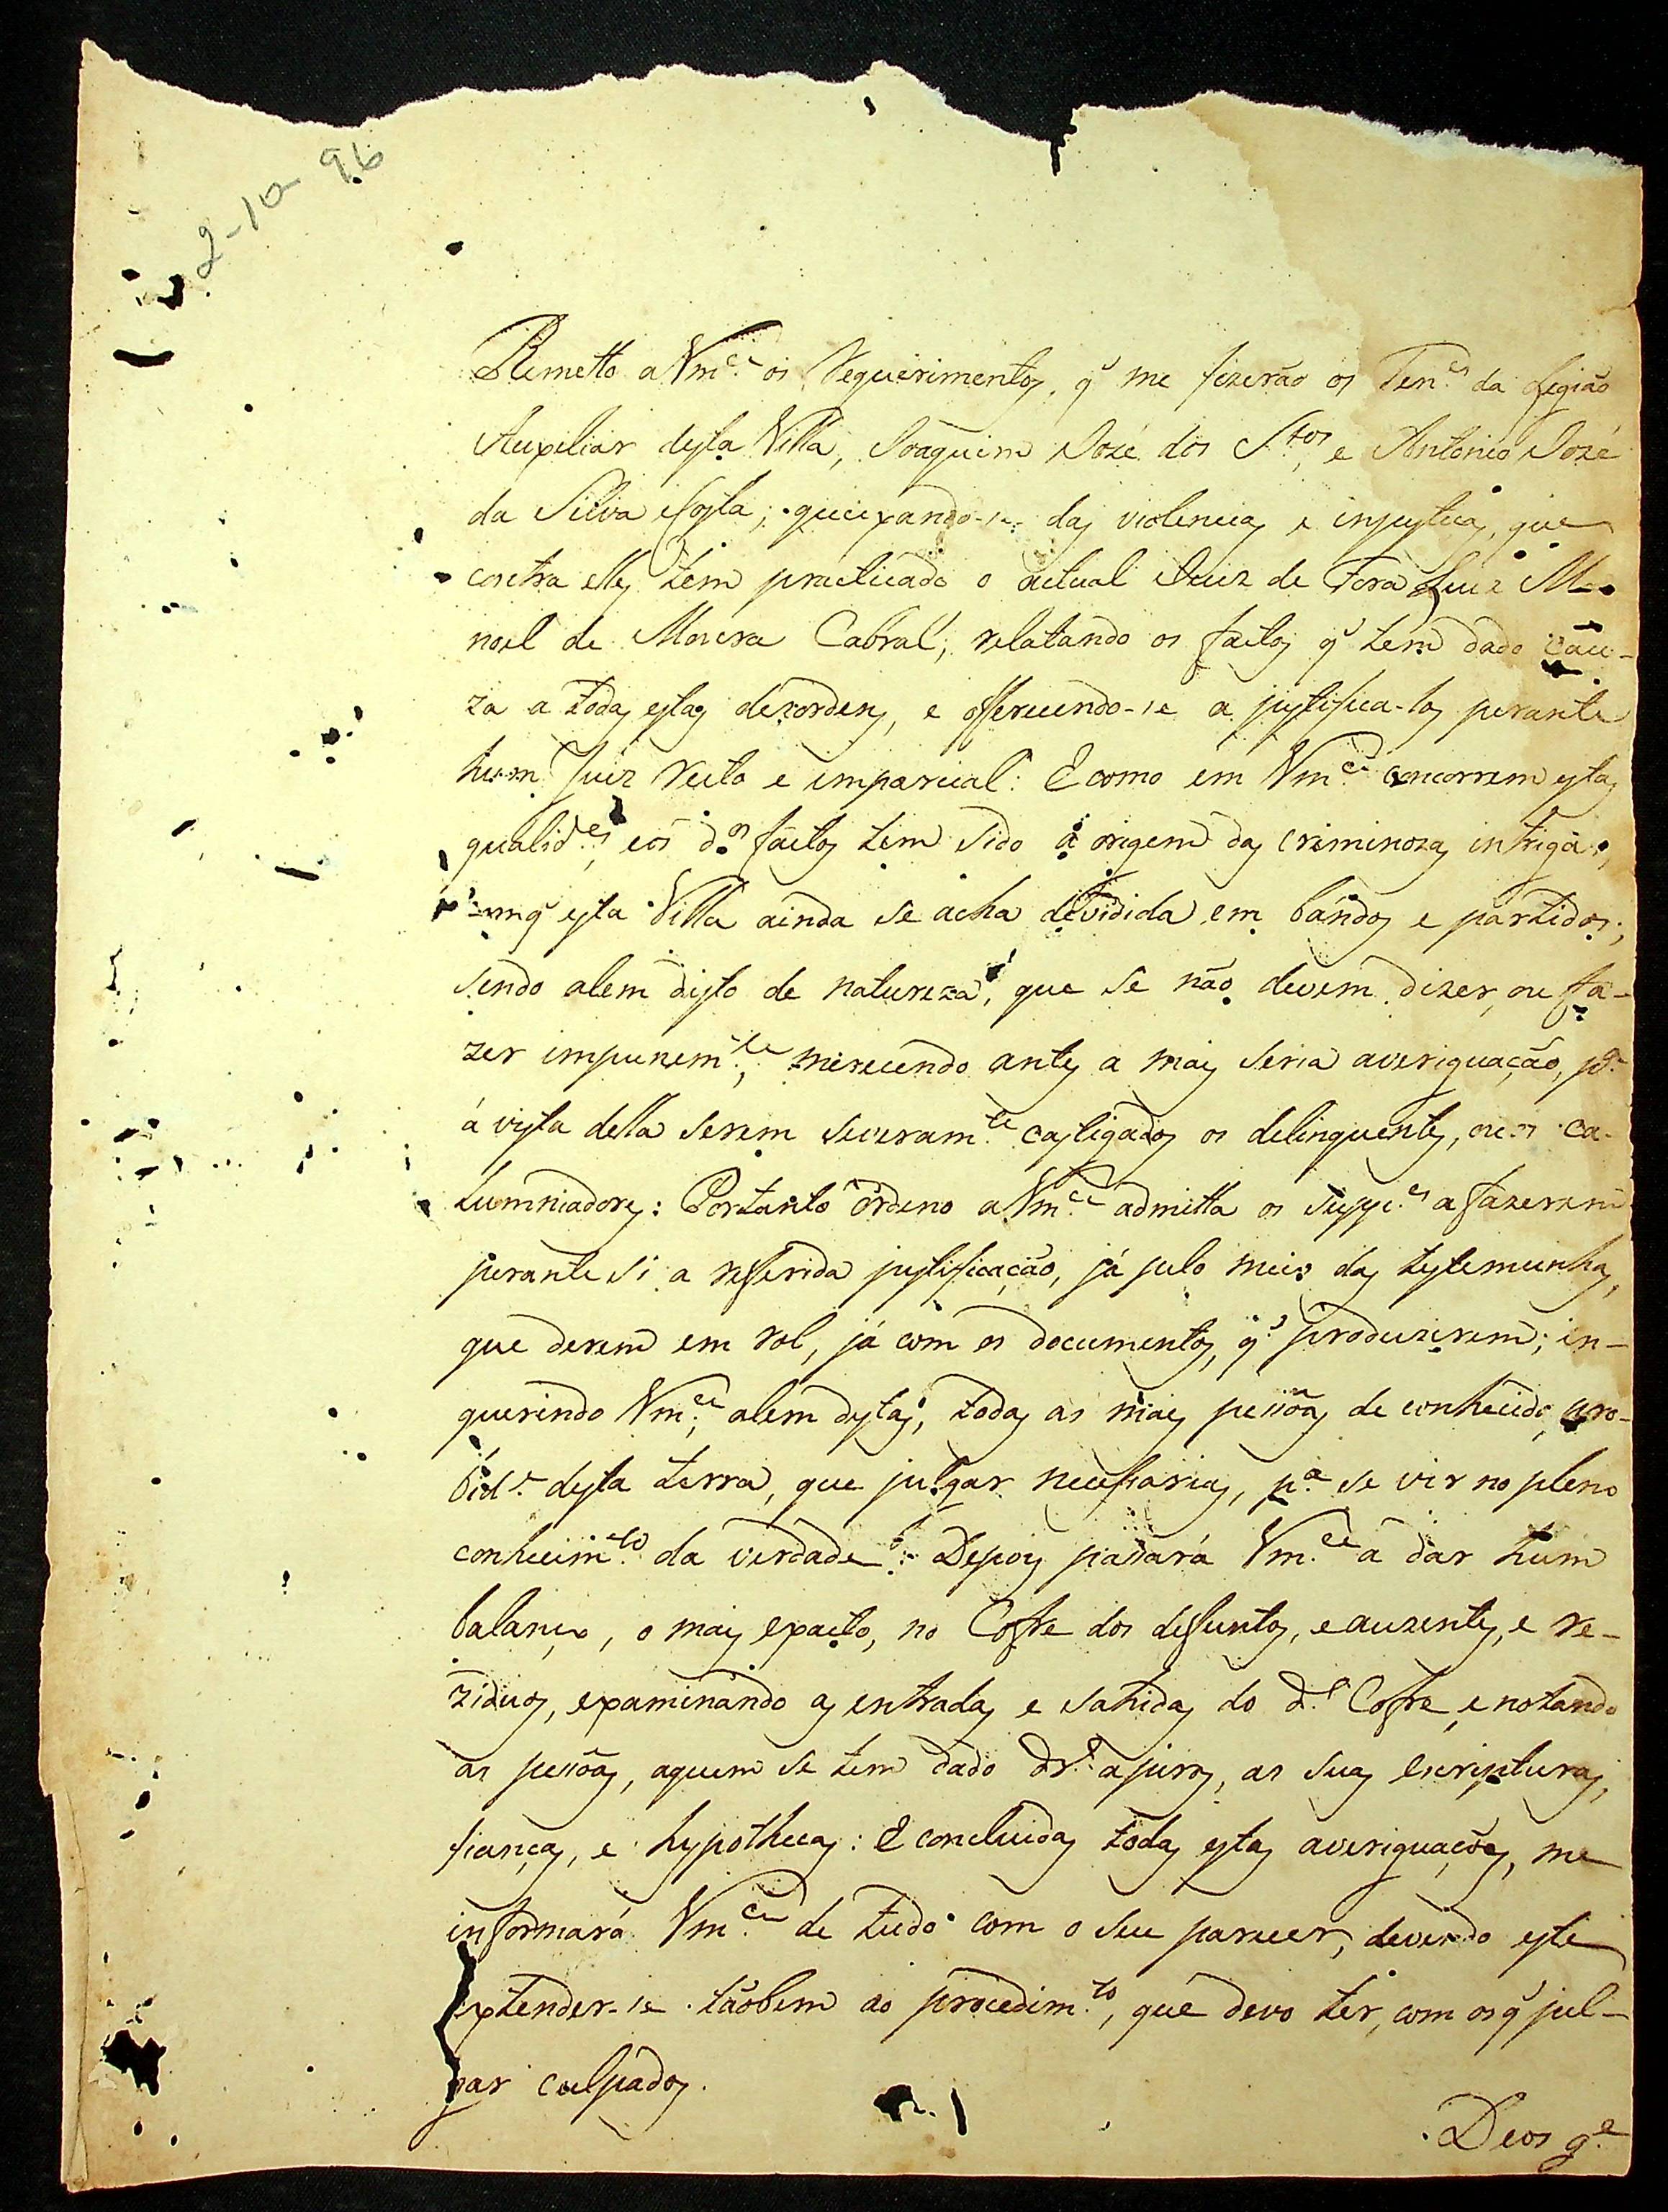 2-10-96
Remetto a Vm.ce os Requerimentos, q̃ me fizerão os Ten.es da Legião
Auxiliar desta Villa, Joaquim José dos S.tos, e Antonio José
da Silva Costa; queixando-se das violencias e injustiças, que
contra elles tem practicado o actual Juiz de Fora Luiz Ma-
noel de Moura Cabral; relatando os factos q̃ tem dado cau-
za a todas estas dezordens, e offerecendo-se a justifica-los perante
hum Juiz recto e imparcial: E como em Vm.ce concorrem estas
qualid.es, e os d.os factos tem sido a origem das criminozas intrigas,
em q̃ esta Villa ainda se acha devidida em bandos e partidos;
sendo alem disto de natureza, que se não devem dizer, ou fa-
zer impunem.te, merecendo antes a mais seria averiguação, p.a
á vista della serem severam.te castigados os delinquentes, ou os ca-
lumniadores: Portanto ordeno a Vm.ce admitta os supp.es a fazerem
perante si a referida justificação, já pelo meio das testemunhas,
que derem em rol, já com os documentos, q̃ produzirem; in-
querindo Vm.ce, alem destas, todas as mais pessôas de conhecida pro-
bid.e desta terra, que julgar necessarias, p.a se vir no pleno
conhecim.to da verdade: Depois passará Vm.ce a dar hum
balanço, o mais exacto, no Cofre dos defuntos, e auzentes, e re-
ziduos, examinando as entradas e sahidas do d.o Cofre, e notando
as pessôas, aquem se tem dado dr.o a juros, as suas escripturas,
fianças, e hypothecas: E concluidas todas estas averiguações, me
informará Vm.ce de tudo com o seu parecer, devendo este
extender-se tãobem ao procedim.to, que devo ter, com os q̃ jul-
gar culpados.
Deos g.e